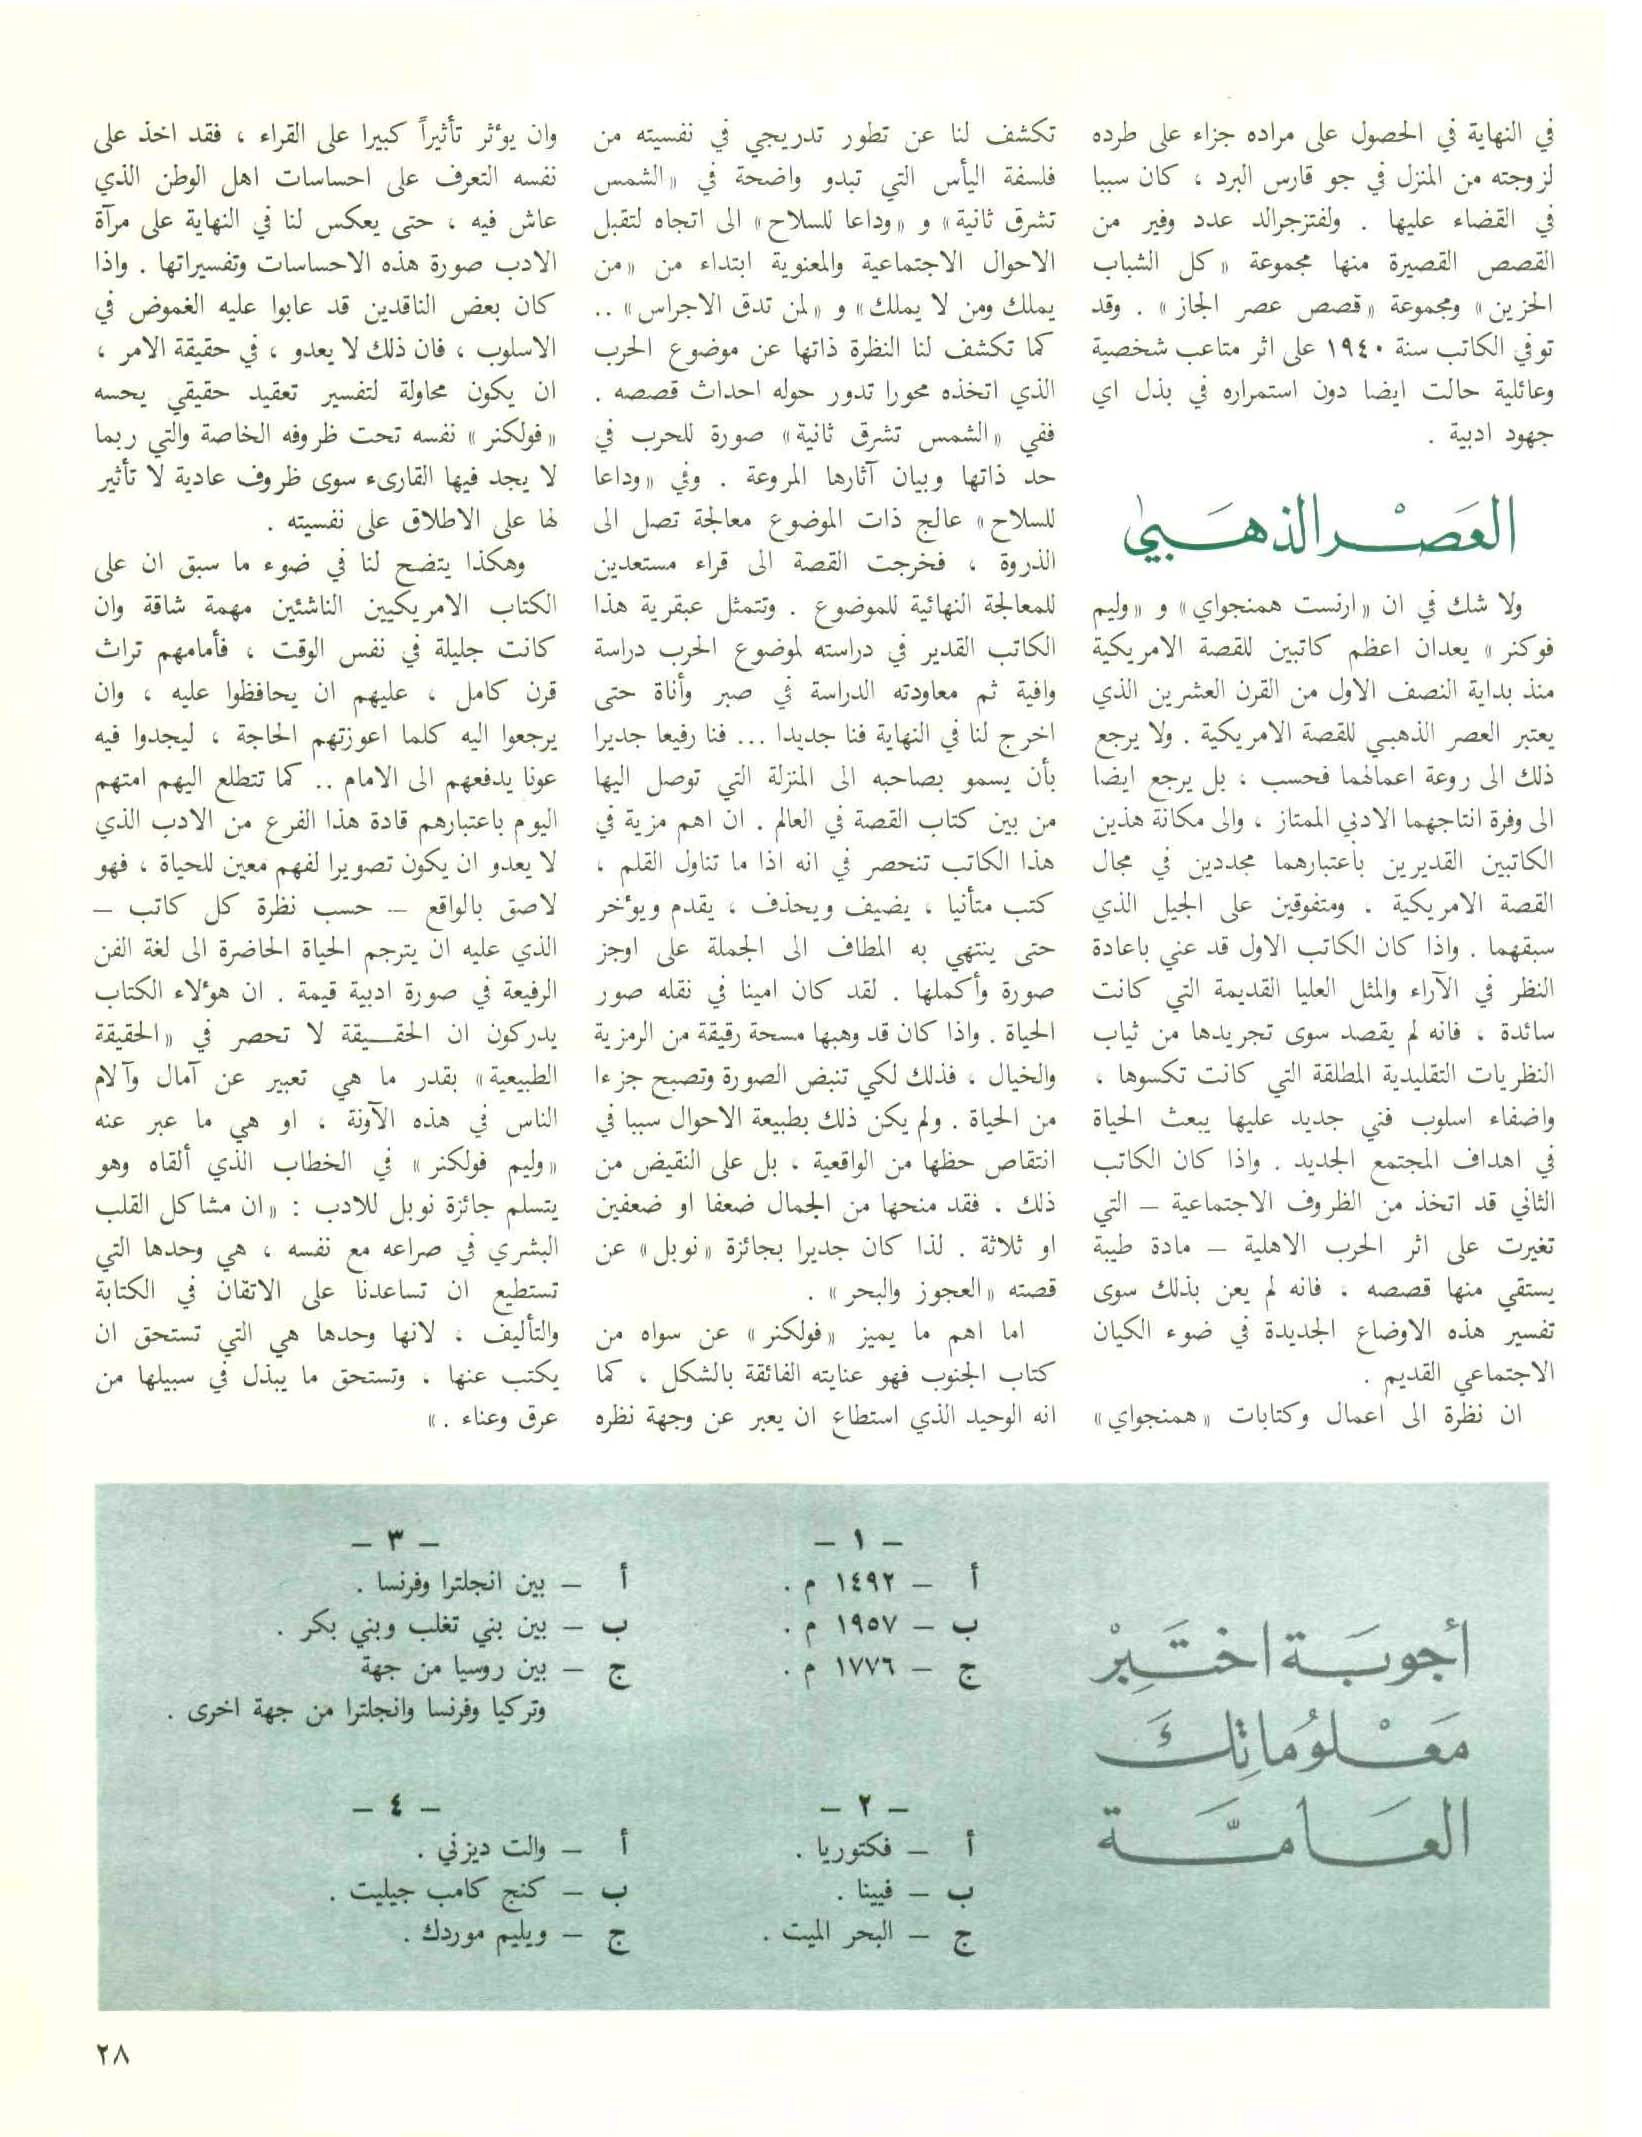 في النهاية في الحصول على مراده جزاء على طرده
لزوجته من المنزل في جو قارس البرد ، كان سببا
في القضاء عليها . ولفتزجرالد عدد وفير من
القصص القصيرة منها مجموعة «كل الشباب
الحزين» ومجموعة «قصص عصر الجاز» . وقد
توفي الكاتب سنة ١٩٤٠ على اثر متاعب شخصية
وعائلية حالت ايضا دون استمراره في بذل اي
جهود ادبية .
العَصْر الذهَبيّ
ولا شك في ان «ارنست همنجواي» و «وليم
فوكنر» يعدان اعظم كاتبين للقصة الامريكية
منذ بداية النصف الاول من القرن العشرين الذي
يعتبر العصر الذهبي للقصة الامريكية . ولا يرجع
ذلك الى روعة اعمالهما فحسب ، بل يرجع ايضا
الى وفرة انتاجهما الادبي الممتاز ، والى مكانة هذين
الكاتبين القديرين باعتبارهما مجددين في مجال
القصة الامريكية ، ومتفوقين على الجيل الذي
سبقهما . واذا كان الكاتب الاول قد عني باعادة
النظر في الآراء والمثل العليا القديمة التي كانت
سائدة ، فانه لم يقصد سوى تجريدها من ثياب
النظريات التقليدية المطلقة التي كانت تكسوها ،
واضفاء اسلوب فني جديد عليها يبعث الحياة
في اهداف المجتمع الجديد . واذا كان الكاتب
الثاني قد اتخذ من الظروف الاجتماعية – التي
تغيرت على اثر الحرب الاهلية – مادة طيبة
يستقي منها قصصه ، فانه لم يعن بذلك سوى
تفسير هذه الاوضاع الجديدة في ضوء الكيان
الاجتماعي القديم .
ان نظرة الى اعمال وكتابات «همنجواي»
تكشف لنا عن تطور تدريجي في نفسيته من
فلسفة اليأس التي تبدو واضحة في «الشمس
تشرق ثانية» و «وداعا للسلاح» الى اتجاه لتقبل
الاحوال الاجتماعية والمعنوية ابتداء من «من
يملك ومن لا يملك» و «لمن تدق الاجراس» ..
كما تكشف لنا النظرة ذاتها عن موضوع الحرب
الذي اتخذه محورا تدور حوله احداث قصصه .
ففي «الشمس تشرق ثانية» صورة للحرب في
حد ذاتها وبيان آثارها المروعة . وفي «وداعا
للسلاح» عالج ذات الموضوع معالجة تصل الى
الذروة ، فخرجت القصة الى قراء مستعدين
للمعالجة النهائية للموضوع . وتتمثل عبقرية هذا
الكاتب القدير في دراسته لموضوع الحرب دراسة
وافية ثم معاودته الدراسة في صبر وأناة حتى
اخرج لنا في النهاية فنا جديدا ... فنا رفيعا جديرا
بأن يسمو بصاحبه الى المنزلة التي توصل اليها
من بين كتاب القصة في العالم . ان اهم مزية في
هذا الكاتب تنحصر في انه اذا ما تناول القلم ،
كتب متأنيا ، يضيف ويحذف ، يقدم ويؤخر
حتى ينتهي به المطاف الى الجملة على اوجز
صورة وأكملها . لقد كان امينا في نقله صور
الحياة . واذا كان قد وهبها مسحة رقيقة من الرمزية
والخيال ، فذلك لكي تنبض الصورة وتصبح جزءا
من الحياة . ولم يكن ذلك بطبيعة الاحوال سببا في
انتقاص حظها من الواقعية ، بل على النقيض من
ذلك ، فقد منحها من الجمال ضعفا او ضعفين
او ثلاثة . لذا كان جديرا بجائزة «نوبل» عن
قصته «العجوز والبحر» .
اما اهم ما يميز «فولكنر» عن سواه من
كتاب الجنوب فهو عنايته الفائقة بالشكل ، كما
انه الوحيد الذي استطاع ان يعبر عن وجهة نظره
وان يؤثر تأثيراً كبيرا على القراء ، فقد اخذ على
نفسه التعرف على احساسات اهل الوطن الذي
عاش فيه ، حتى يعكس لنا في النهاية على مرآة
الادب صورة هذه الاحساسات وتفسيراتها . واذا
كان بعض الناقدين قد عابوا عليه الغموض في
الاسلوب ، فان ذلك لا يعدو ، في حقيقة الامر ،
ان يكون محاولة لتفسير تعقيد حقيقي يحسه
«فولكنر» نفسه تحت ظروفه الخاصة والتي ربما
لا يجد فيها القارىء سوى ظروف عادية لا تأثير
لها على الاطلاق على نفسيته .
وهكذا يتضح لنا في ضوء ما سبق ان على
الكتاب الامريكيين الناشئين مهمة شاقة وان
كانت جليلة في نفس الوقت ، فأمامهم تراث
قرن كامل ، عليهم ان يحافظوا عليه ، وان
يرجعوا اليه كلما اعوزتهم الحاجة ، ليجدوا فيه
عونا يدفعهم الى الامام .. كما تتطلع اليهم امتهم
اليوم باعتبارهم قادة هذا الفرع من الادب الذي
لا يعدو ان يكون تصويرا لفهم معين للحياة ، فهو
لاصق بالواقع – حسب نظرة كل كاتب –
الذي عليه ان يترجم الحياة الحاضرة الى لغة الفن
الرفيعة في صورة ادبية قيمة . ان هؤلاء الكتاب
يدركون ان الحقيقة لا تحصر في «الحقيقة
الطبيعية» بقدر ما هي تعبير عن آمال وآلام
الناس في هذه الآونة ، او هي ما عبر عنه
«وليم فولكنر» في الخطاب الذي ألقاه وهو
يتسلم جائزة نوبل للادب : «ان مشاكل القلب
البشري في صراعه مع نفسه ، هي وحدها التي
تستطيع ان تساعدنا على الاتقان في الكتابة
والتأليف ، لانها وحدها هي التي تستحق ان
يكتب عنها ، وتستحق ما يبذل في سبيلها من
عرق وعناء .»
أجوبَة اختَبِرْ
مَعْلوُماتِكَ
العَامَّة
– ١ –
أ – ١٤٩٢ م .
ب – ١٩٥٧ م .
ج – ١٧٧٦ م .
– ٢ –
أ – فكتوريا .
ب – فيينا .
ج – البحر الميت .
– ٣ –
أ – بين انجلترا وفرنسا .
ب – بين بني تغلب وبني بكر .
ج – بين روسيا من جهة
وتركيا وفرنسا وانجلترا من جهة اخرى .
– ٤ –
أ – والت ديزني .
ب – كنج كامب جيليت .
ج – ويليم موردك .
٢٨